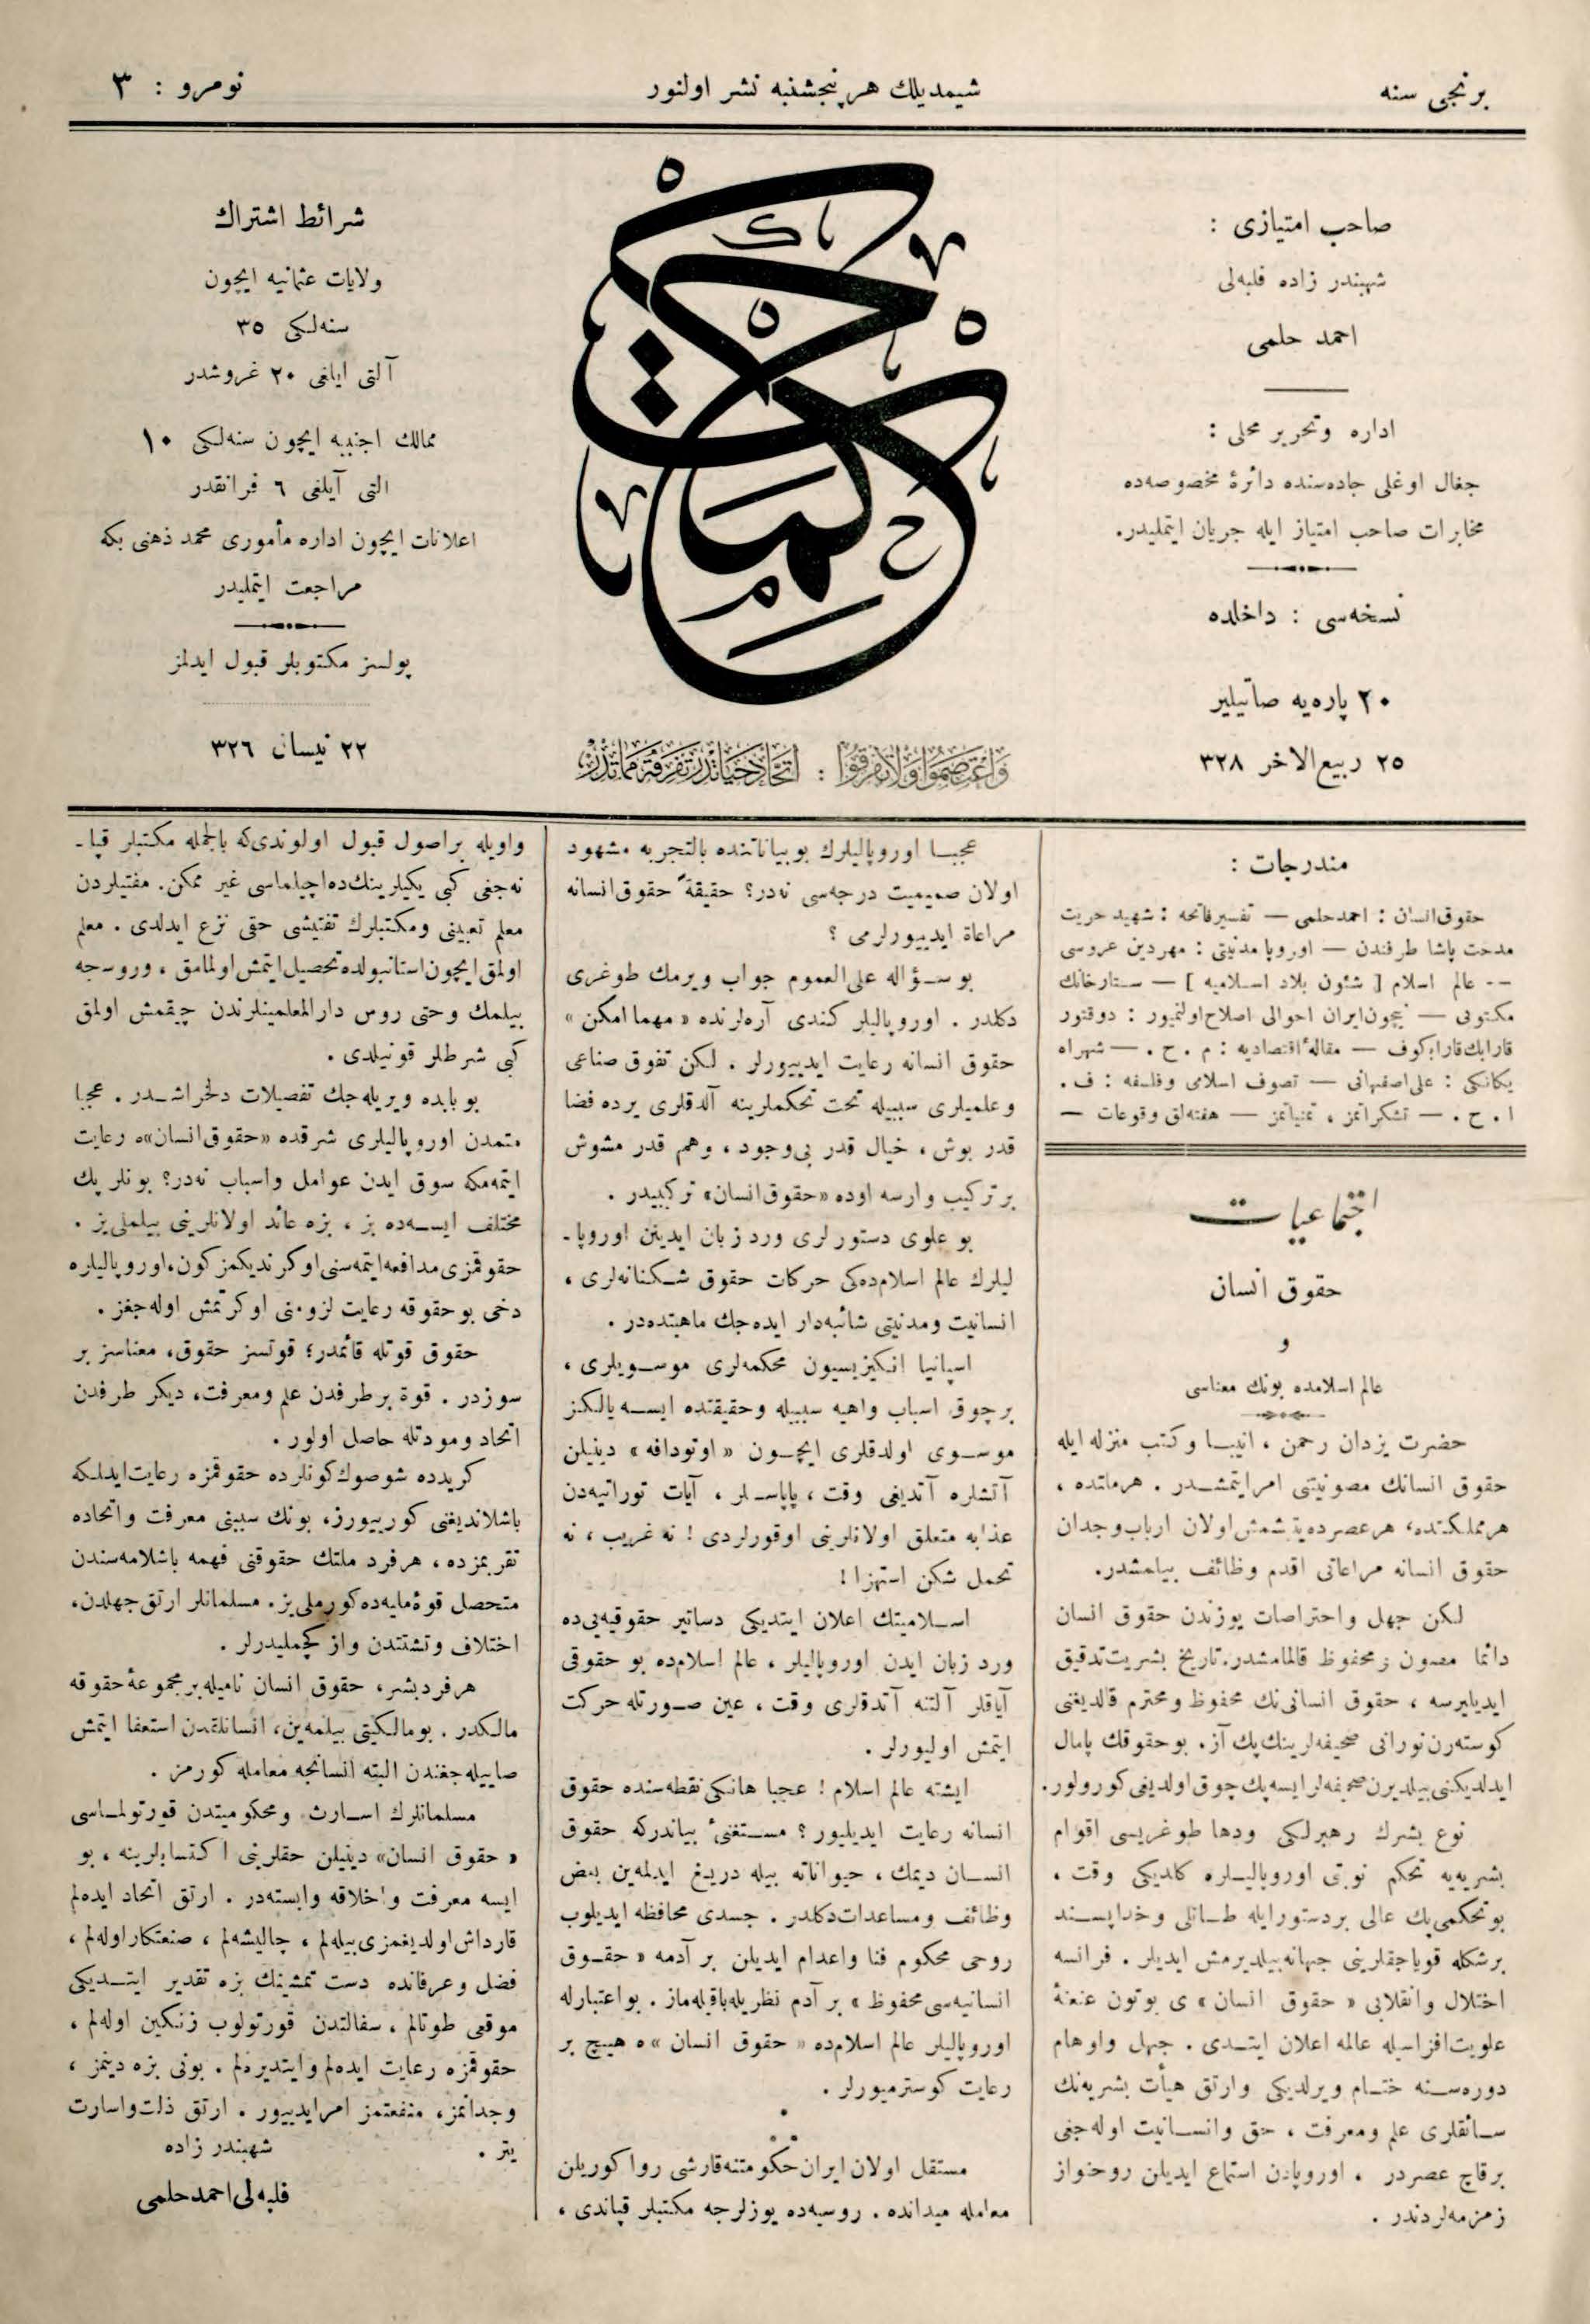 برنجی سنه
شیمدیلك هر پنجشنبه نشر اولنور
نومرو : ٣
صاحب امتیازی :
شهبندر زاده فلبه‌لی
احمد حلمی
اداره وتحریر محلی :
جغال اوغلی جاده‌سنده دائرۀ مخصوصه‌ده
مخابرات صاحب امتیاز ایله جریان ایتملیدر.
نسخه‌سی : داخلده
٢٠ پاره‌یه صاتیلیر
٢٥ ربیع‌الاخر ٣٢٨
حكمت
وَاعْتَصِمُوا وَلَا تَفَرَّقُوا : اتحاد حیاتدر تفرقه مماتدر
شرائط اشتراك
ولایات عثمانیه ایچون
سنه‌لكی ٣٥
آلتی ایلغی ٢٠ غروشدر
ممالك اجنبیه ایچون سنه‌لكی ١٠
التی آیلغی ٦ فرانقدر
اعلانات ایچون اداره مأموری محمد ذهنی بكه
مراجعت ایتملیدر
پولسز مكتوبلر قبول ایدلمز
٢٢ نیسان ٣٢٦
مندرجات :
حقوق انسان : احمدحلمی — تفسیرفاتحه : شهید حریت
مدحت پاشا طرفندن — اوروپا مدنیتی : مهردین عروسی
-- عالم اسلام [ شئون بلاد اسلامیه ] — ستارخانك
مكتوبی — نیچون ایران احوالی اصلاح اولنمیور : دوقتور
قارابك قارابكوف — مقالۀ اقتصادیه : م . ح . — شهراه
یكانكی : علی اصفهانی — تصوف اسلامی وفلسفه : ف .
ا . ح . — تشكراتمز ، تمنیاتمز — هفته‌لق وقوعات —
اجتماعیات
حقوق انسان
و
عالم اسلامده بونك معناسی
حضرت یزدان رحمن ، انبیا وكتب منزله ایله
حقوق انسانك مصونیتنی امر ایتمشدر . هرملتده ،
هرمملكتده، هرعصرده یتشمش اولان ارباب وجدان
حقوق انسانه مراعاتی اقدم وظائف بیلمشدر.
لكن جهل واحتراصات یوزندن حقوق انسان
دائما مصون ومحفوظ قالمامشدر. تاریخ بشریت تدقیق
ایدیلیرسه ، حقوق انسانی‌نك محفوظ ومحترم قالدیغنی
كوسته‌رن نورانی صحیفه‌لرینك پك آز. بو حقوقك پامال
ایدلدیكنی بیلدیرن صحیفه‌لر ایسه پك چوق اولدیغی كورولور.
نوع بشرك رهبرلكی ودها طوغریسی اقوام
بشریه‌یه تحكم نوبتی اوروپالیلره كلدیكی وقت ،
بوتحكمی پك عالی بردستور ایله طاتلی وخداپسند
برشكله قویاجقلرینی جهانه بیلدیرمش ایدیلر . فرانسه
اختلال وانقلابی « حقوق انسان » ی بوتون عنعنۀ
علویت‌افزاسیله عالمه اعلان ایتدی . جهل واوهام
دوره‌سنه ختام ویرلدیكی وارتق هیأت بشریه‌نك
سائقلری علم ومعرفت ، حق وانسانیت اوله‌جغی
برقاچ عصردر ، اوروپادن استماع ایدیلن روحنواز
زمزمه‌لردندر .
عجبا اوروپالیلرك بوبیاناتنده بالتجربه مشهود
اولان صمیمیت درجه‌سی نه‌در؟ حقیقةً حقوق انسانه
مراعاة ایدییورلرمی ؟
بو سؤاله علی‌العموم جواب ویرمك طوغری
دكلدر . اوروپالیلر كندی آره‌لرنده « مهما امكن »
حقوق انسانه رعایت ایدییورلر . لكن تفوق صناعی
وعلمیلری سببیله تحت تحكملرینه آلدقلری یرده فضا
قدر بوش ، خیال قدر بی‌وجود ، وهم قدر مشوش
برتركیب وارسه اوده «حقوق انسان» تركیبیدر .
بو علوی دستورلری ورد زبان ایدینن اوروپا-
لیلرك عالم اسلامده‌كی حركات حقوق شكنانه‌لری ،
انسانیت ومدنیتی شائبه‌دار ایده‌جك ماهیتده‌در .
اسپانیا انكیزیسیون محكمه‌لری موسویلری ،
برچوق اسباب واهیه سببیله وحقیقتده ایسه یالكز
موسوی اولدقلری ایچون « اوتودافه » دینیلن
آتشلره آتدیغی وقت ، پاپاسلر ، آیات توراتیه‌دن
عذابه متعلق اولانلرینی اوقورلردی ! نه غریب ، نه
تحمل شكن استهزا !
اسلامیتك اعلان ایتدیكی دساتیر حقوقیه‌یی ده
ورد زبان ایدن اوروپالیلر ، عالم اسلامده بو حقوقی
آیاقلر آلتنه آتدقلری وقت ، عین صورتله حركت
ایتمش اولیورلر .
ایشته عالم اسلام ! عجبا هانكی نقطه‌سنده حقوق
انسانه رعایت ایدیلیور ؟ مستغنیٔ بیاندركه حقوق
انسان دیمك ، حیواناته بیله دریغ ایدلمه‌ین بعض
وظائف ومساعدات دكلدر . جسدی محافظه ایدیلوب
روحی محكوم فنا واعدام ایدیلن بر آدمه « حقوق
انسانیه‌سی محفوظ » بر آدم نظریله باقیله‌ماز . بو اعتبارله
اوروپالیلر عالم اسلامده « حقوق انسان » ه هیچ بر
رعایت كوسترمیورلر .
مستقل اولان ایران حكومتنه قارشی روا كوریلن
معامله میدانده . روسیه‌ده یوزلرجه مكتبلر قپاندی ،
واویله براصول قبول اولوندی‌كه بالجمله مكتبلر قپا-
نه‌جغی كبی یكیلرینك ده اچیلماسی غیر ممكن. مفتیلردن
معلم تعیینی ومكتبلرك تفتیشی حقی نزع ایدلدی . معلم
اولمق ایچون استانبولده تحصیل ایتمش اولمامق ، وروسجه
بیلمك وحتی روس دارالمعلمینلرندن چیقمش اولمق
كبی شرطلر قونیلدی .
بو بابده ویریله‌جك تفصیلات دلخراشدر . عجبا
متمدن اوروپالیلری شرقده «حقوق انسان»ه رعایت
ایتمه‌مكه سوق ایدن عوامل واسباب نه‌در؟ بونلر پك
مختلف ایسه‌ده بز ، بزه عائد اولانلرینی بیلملی‌یز .
حقوقمزی مدافعه ایتمه‌سنی اوكرندیكمز كون، اوروپالیلره
دخی بوحقوقه رعایت لزومنی اوكرتمش اوله‌جغز .
حقوق قوتله قائمدر؛ قوتسز حقوق، معناسز بر
سوزدر . قوة برطرفدن علم ومعرفت، دیكر طرفدن
اتحاد ومودتله حاصل اولور .
كریدده شوصوك كونلرده حقوقمزه رعایت ایدلمكه
باشلاندیغنی كورییورز، بونك سببنی معرفت واتحاده
تقربمزده ، هرفرد ملتك حقوقنی فهمه باشلامه‌سندن
متحصل قوۀ مایه‌ده كورملی‌یز. مسلمانلر ارتق جهلدن،
اختلاف وتشتتدن واز كچملیدرلر .
هرفردبشر، حقوق انسان نامیله برمجموعۀ حقوقه
مالكدر . بومالكیتی بیلمه‌ین، انسانلقدن استعفا ایتمش
صاییله‌جغندن البته انسانجه معامله كورمز .
مسلمانلرك اسارت ومحكومیتدن قورتولماسی
« حقوق انسان» دینیلن حقلرینی اكتسابلرینه ، بو
ایسه معرفت واخلاقه وابسته‌در . ارتق اتحاد ایده‌لم
قارداش اولدیغمزی بیله‌لم ، چالیشه‌لم ، صنعتكار اوله‌لم ،
فضل وعرفانده دست تمشیتك بزه تقدیر ایتدیكی
موقعی طوتالم ، سفالتدن قورتولوب زنكین اوله‌لم ،
حقوقمزه رعایت ایده‌لم وایتدیره‌لم . بونی بزه دینمز ،
وجدانمز، منفعتمز امرایدییور . ارتق ذلت واسارت
یتر .
شهبندر زاده
فلبه‌لی احمدحلمی